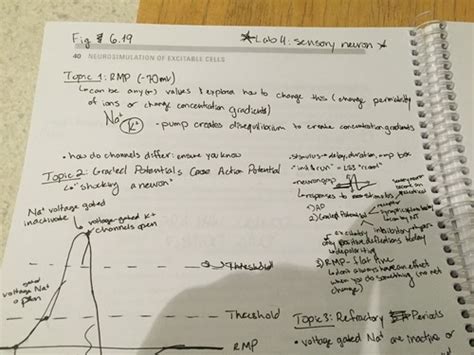 Fig 6.19
★Lab 4: sensory neuron★
40 NEUROSIMULATION OF EXCITABLE CELLS
Topic 1: RMP (-70mv)
can be any (m) values & explore how to change this (change permeability
of ions or change concentration gradients)
Na+
K+
- pump creates disequilibrium to create concentration gradients
• how do channels differ: ensure you know
Topic 2: Graded Potentials Action Potential
"shocking a neuron"
Na+ voltage gated
inactivate
voltage-gated K+
channels open
gated
voltage Na+
open
Threshold
Threshold
RMP
stimulus → delay, duration, amp box
responses to
1) AP
2) Graded Potential
excitatory inhibitory
positive deflections
depolarizing
3) RMP - flat line
don't always have an effect
when you do something (no net
change)
Topic 3: Refractory Periods
• voltage gated Na+ are inactive or